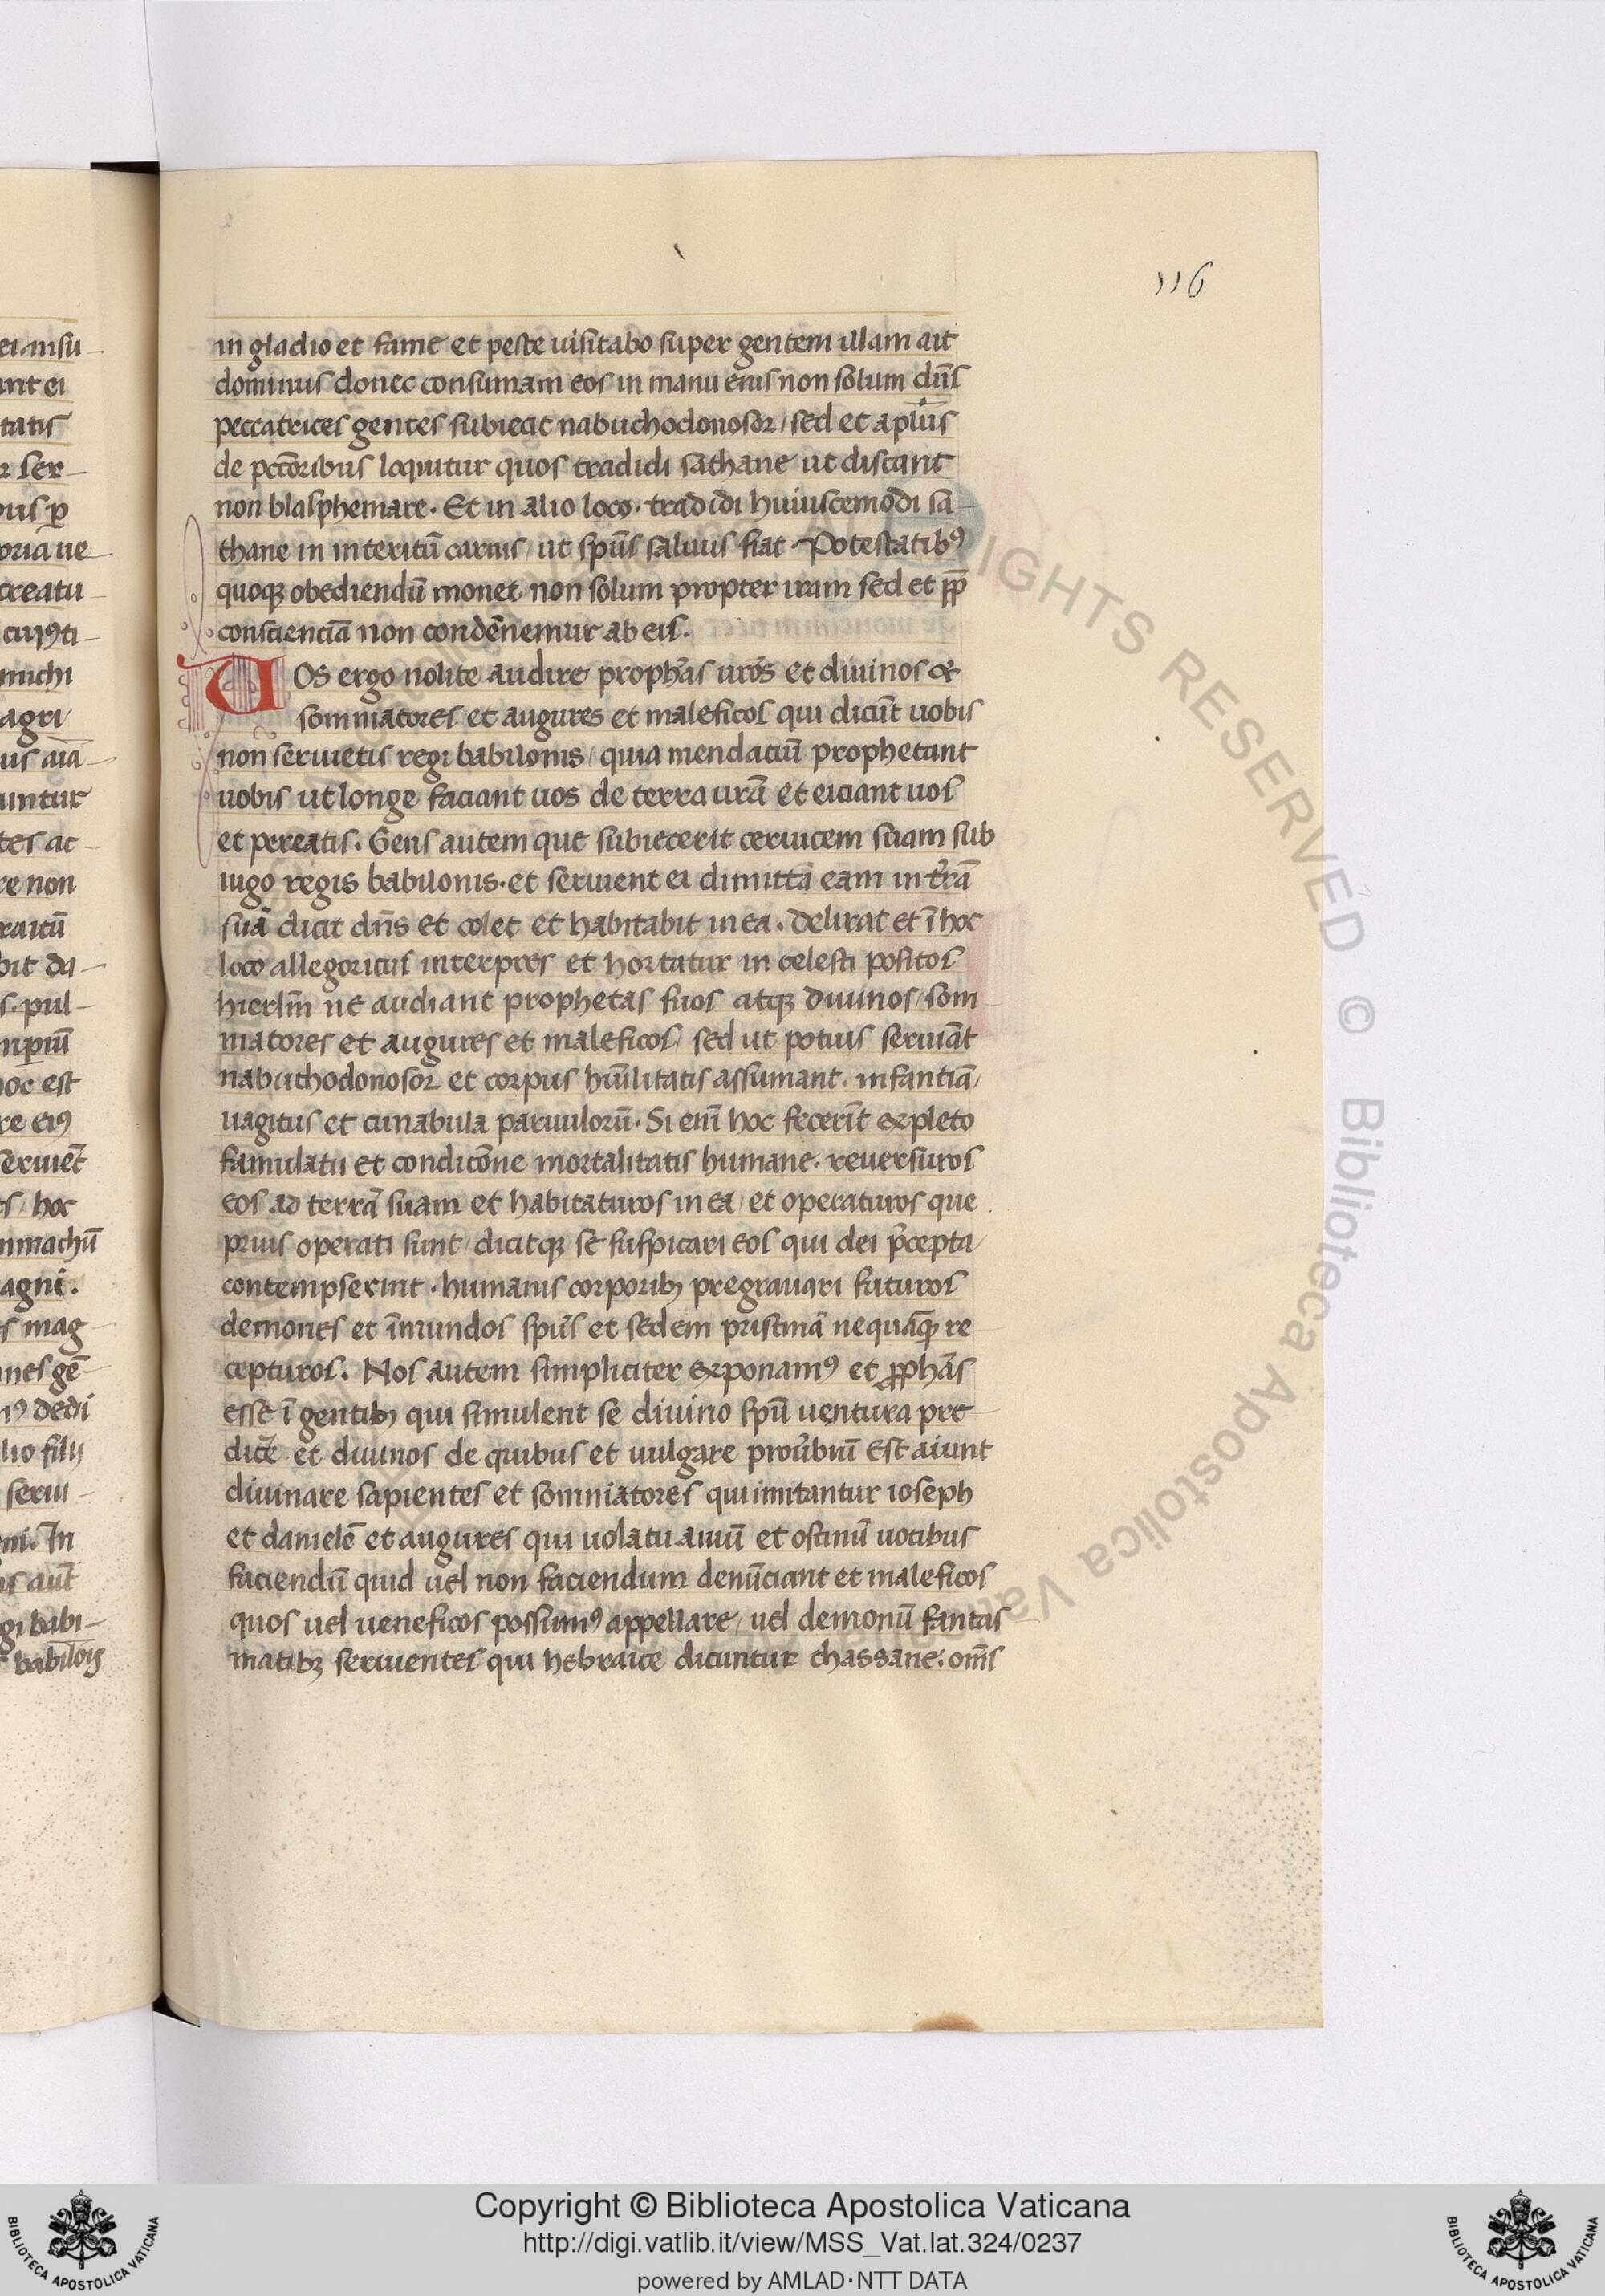 116
in gladio et fame et peste uisitabo super gentem illam ait
dominus donec consumam eos in manu eius non solum dn̄s
peccatrices gentes subiecit nabuchodonosor / sed et apl̄us
de pccōribus loquitur quos tradidi sathane ut discant
non blasphemare. Et in alio loco. tradidi huiuscemodi sa
thane in interitū carnis / ut spūs saluus fiat. Potestatibꝰ
quoqꝫ obediendū monet non solum propter iram sed et pp̄
conscienciā non condēnemur ab eis.
UOs ergo nolite audire proph̄as ur̄os et diuinos et
somniatores et augures et maleficos qui dicūt uobis
non seruietis regi babilonis / quia mendaciū prophetant
uobis ut longe faciant uos de terra ur̄a et eiciant uos
et pereatis. Gens autem que subiecerit ceruicem suam sub
iugo regis babilonis. et seruient ei dimittā eam in tr̄ā
suā dicit dn̄s et colet et habitabit in ea. delirat et ī hoc
loco allegoricus interpres et hortatur in celesti positos
hierlm̄ ne audiant prophetas suos atqꝫ diuinos / som
niatores et augures et maleficos / sed ut potius seruiāt
nabuchodonosor et corpus hūilitatis assumant. infantiā /
uagitus et cunabula paruulorū. Si eni̅ hoc fecerīt expleto
famulatu et condicōne mortalitatis humane. reuersuros
eos ad terrā suam et habitaturos in ea / et operaturos que
prius operati sunt / dicitqꝫ se suspicari eos qui dei p̄cepta /
contempserint. humanis corporibꝫ pregrauari futuros
demones et īmundos spūs et sedem pristinā nequāqꝫ re
cepturos. Nos autem simpliciter exponamꝰ et ꝓph̄as
esse ī gentibꝫ qui simulent se diuino spū uentura pre
dicere et diuinos de quibus et uulgare prou̅biū est aiunt
diuinare sapientes et somniatores qui imitantur ioseph
et danielē et augures qui uolatu auiū et oscinū uocibus
faciendū quid uel non faciendum denūciant et maleficos
quos uel ueneficos possumꝰ appellare / uel demonū fantas
matibꝫ seruientes qui hebraice dicuntur chassane. om̄s
ALL RIGHTS RESERVED © Biblioteca Apostolica Vaticana
Copyright © Biblioteca Apostolica Vaticana
http://digi.vatlib.it/view/MSS_Vat.lat.324/0237
powered by AMLAD·NTT DATA
BIBLIOTECA APOSTOLICA VATICANA
BIBLIOTECA APOSTOLICA VATICANA